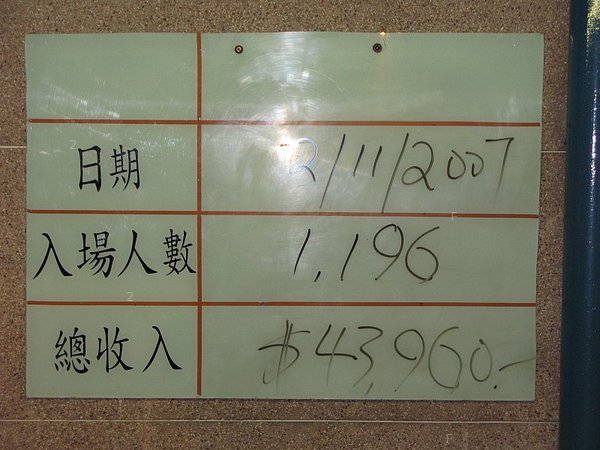 日期 2/11/2007
入場人數 1,196
總收入 $43,960.-